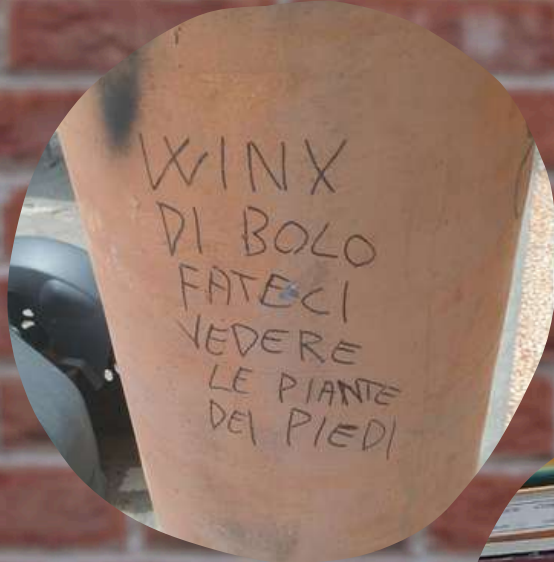 WINX
DI BOLO
FATECI
VEDERE
LE PIANTE
DEI PIEDI